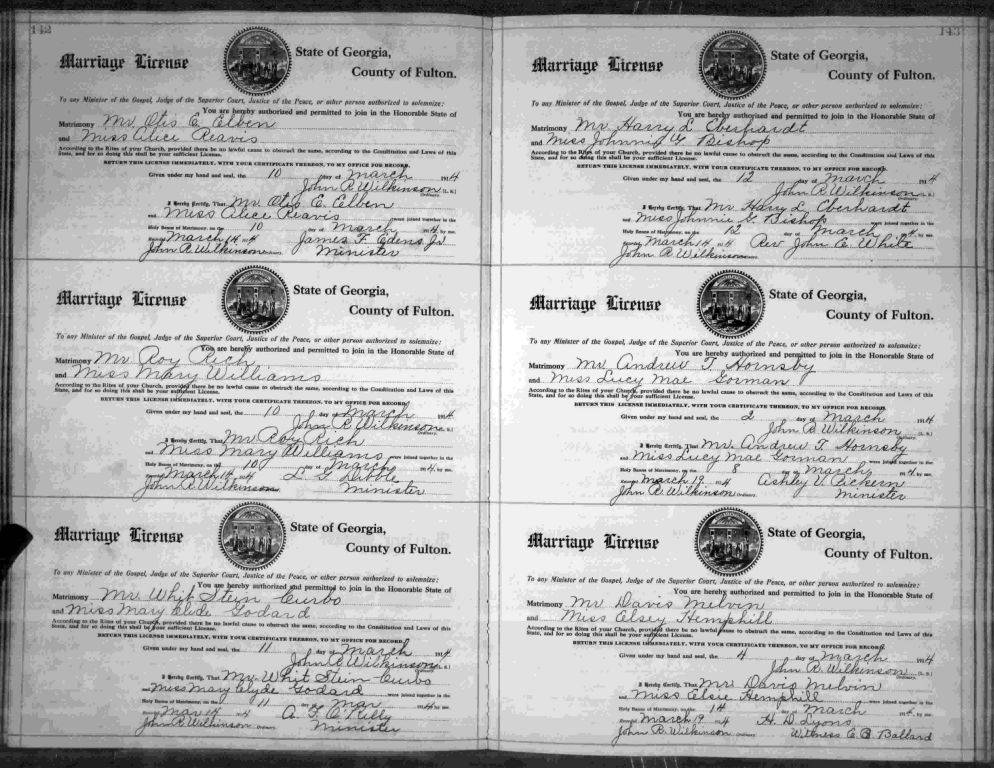 142
Marriage License
State of Georgia,
County of Fulton.
To any Minister of the Gospel, Judge of the Superior Court, Justice of the Peace, or other person authorized to solemnize:
You are hereby authorized and permitted to join in the Honorable State of
Matrimony Mr. Otis E. Elben
and Miss Alice Reavis
According to the Rites of your Church, provided there be no lawful cause to obstruct the same, according to the Constitution and Laws of this
State, and for so doing this shall be your sufficient License.
RETURN THIS LICENSE IMMEDIATELY, WITH YOUR CERTIFICATE THEREON, TO MY OFFICE FOR RECORD.
Given under my hand and seal, the 10 day of March 1914
John R. Wilkinson (L. S.)
Ordinary.
I Hereby Certify, That Mr. Otis E. Elben
and Miss Alice Reavis were joined together in the
Holy Banns of Matrimony, on the 10 day of March 1914, by me.
Record March 14 1914 James F. Edens Jr.
John R. Wilkinson Ordinary. Minister
Marriage License
State of Georgia,
County of Fulton.
To any Minister of the Gospel, Judge of the Superior Court, Justice of the Peace, or other person authorized to solemnize:
You are hereby authorized and permitted to join in the Honorable State of
Matrimony Mr Roy Rich
and Miss Mary Williams
According to the Rites of your Church, provided there be no lawful cause to obstruct the same, according to the Constitution and Laws of this
State, and for so doing this shall be your sufficient License.
RETURN THIS LICENSE IMMEDIATELY, WITH YOUR CERTIFICATE THEREON, TO MY OFFICE FOR RECORD.
Given under my hand and seal, the 10 day of March 1914
John R. Wilkinson (L. S.)
Ordinary.
I Hereby Certify, That Mr Roy Rich
and Miss Mary Williams were joined together in the
Holy Banns of Matrimony, on the 10 day of March 1914, by me.
Record March 14 1914 L. T.
John R. Wilkinson Ordinary. Minister
Marriage License
State of Georgia,
County of Fulton.
To any Minister of the Gospel, Judge of the Superior Court, Justice of the Peace, or other person authorized to solemnize:
You are hereby authorized and permitted to join in the Honorable State of
Matrimony Mr. Whit Stein Curbo
and Miss Mary Clyde Godard
According to the Rites of your Church, provided there be no lawful cause to obstruct the same, according to the Constitution and Laws of this
State, and for so doing this shall be your sufficient License.
RETURN THIS LICENSE IMMEDIATELY, WITH YOUR CERTIFICATE THEREON, TO MY OFFICE FOR RECORD.
Given under my hand and seal, the 11 day of March 1914
John R. Wilkinson (L. S.)
Ordinary.
I Hereby Certify, That Mr. Whit Stein Curbo
and Miss Mary Clyde Godard were joined together in the
Holy Banns of Matrimony, on the 11 day of Mar 1914, by me.
Record Mar 14 1914 A. F. O'Kelly
John R. Wilkinson Ordinary. Minister
143
Marriage License
State of Georgia,
County of Fulton.
To any Minister of the Gospel, Judge of the Superior Court, Justice of the Peace, or other person authorized to solemnize:
You are hereby authorized and permitted to join in the Honorable State of
Matrimony Mr Harry L Eberhardt
and Miss Johnnie G. Bishop
According to the Rites of your Church, provided there be no lawful cause to obstruct the same, according to the Constitution and Laws of this
State, and for so doing this shall be your sufficient License.
RETURN THIS LICENSE IMMEDIATELY, WITH YOUR CERTIFICATE THEREON, TO MY OFFICE FOR RECORD.
Given under my hand and seal, the 12 day of March 1914
John R. Wilkinson (L. S.)
Ordinary.
I Hereby Certify, That Mr. Harry L. Eberhardt
and Miss Johnnie G. Bishop were joined together in the
Holy Banns of Matrimony, on the 12 day of March 1914, by me.
Record March 14 1914 Rev John E. White
John R. Wilkinson Ordinary.
Marriage License
State of Georgia,
County of Fulton.
To any Minister of the Gospel, Judge of the Superior Court, Justice of the Peace, or other person authorized to solemnize:
You are hereby authorized and permitted to join in the Honorable State of
Matrimony Mr. Andrew T. Hornsby
and Miss Lucy Mae Gorman
According to the Rites of your Church, provided there be no lawful cause to obstruct the same, according to the Constitution and Laws of this
State, and for so doing this shall be your sufficient License.
RETURN THIS LICENSE IMMEDIATELY, WITH YOUR CERTIFICATE THEREON, TO MY OFFICE FOR RECORD.
Given under my hand and seal, the 2 day of March 1914
John R. Wilkinson (L. S.)
Ordinary.
I Hereby Certify, That Mr. Andrew T. Hornsby
and Miss Lucy Mae Gorman were joined together in the
Holy Banns of Matrimony, on the 8 day of March 1914, by me.
Record March 19 1914 Ashley V. Pickern
John R. Wilkinson Ordinary. Minister
Marriage License
State of Georgia,
County of Fulton.
To any Minister of the Gospel, Judge of the Superior Court, Justice of the Peace, or other person authorized to solemnize:
You are hereby authorized and permitted to join in the Honorable State of
Matrimony Mr Davis Melvin
and Miss Elsey Hemphill
According to the Rites of your Church, provided there be no lawful cause to obstruct the same, according to the Constitution and Laws of this
State, and for so doing this shall be your sufficient License.
RETURN THIS LICENSE IMMEDIATELY, WITH YOUR CERTIFICATE THEREON, TO MY OFFICE FOR RECORD.
Given under my hand and seal, the 4 day of March 1914
John R. Wilkinson (L. S.)
Ordinary.
I Hereby Certify, That Mr Davis Melvin
and Miss Elsie Hemphill were joined together in the
Holy Banns of Matrimony, on the 14 day of March 1914, by me.
Record March 19 1914 H. D. Lyons
John R. Wilkinson Ordinary. Witness C. B. Ballard